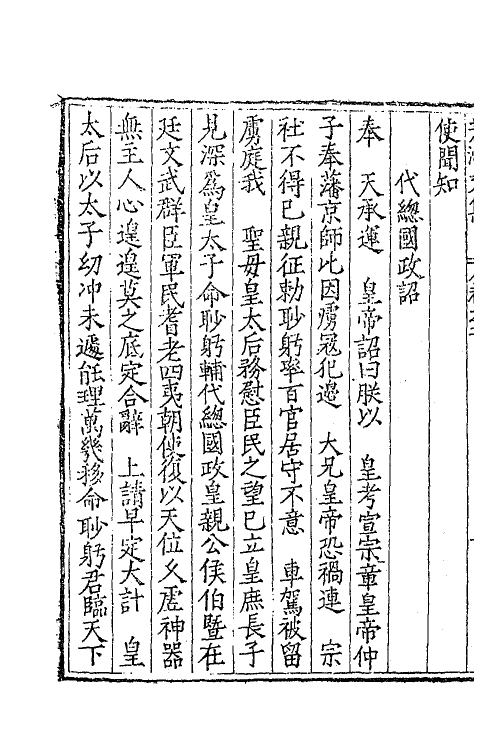 使聞知
代總國政詔
奉 天承運 皇帝詔曰朕以 皇考宣宗章皇帝仲
子奉藩京師比因虜冦犯邊 大兄皇帝恐禍連 宗
社不得已親征勑眇躬率百官居守不意 車駕被留
虜庭我 聖母皇太后務慰臣民之望已立皇庶長子
見深爲皇太子命眇躬輔代總國政皇親公侯伯暨在
廷文武群臣軍民耆老四夷朝使復以天位久虚神器
無主人心遑遑莫之底定合辭 上請早定大計 皇
太后以太子幼冲未遽能理萬幾移命眇躬君臨天下